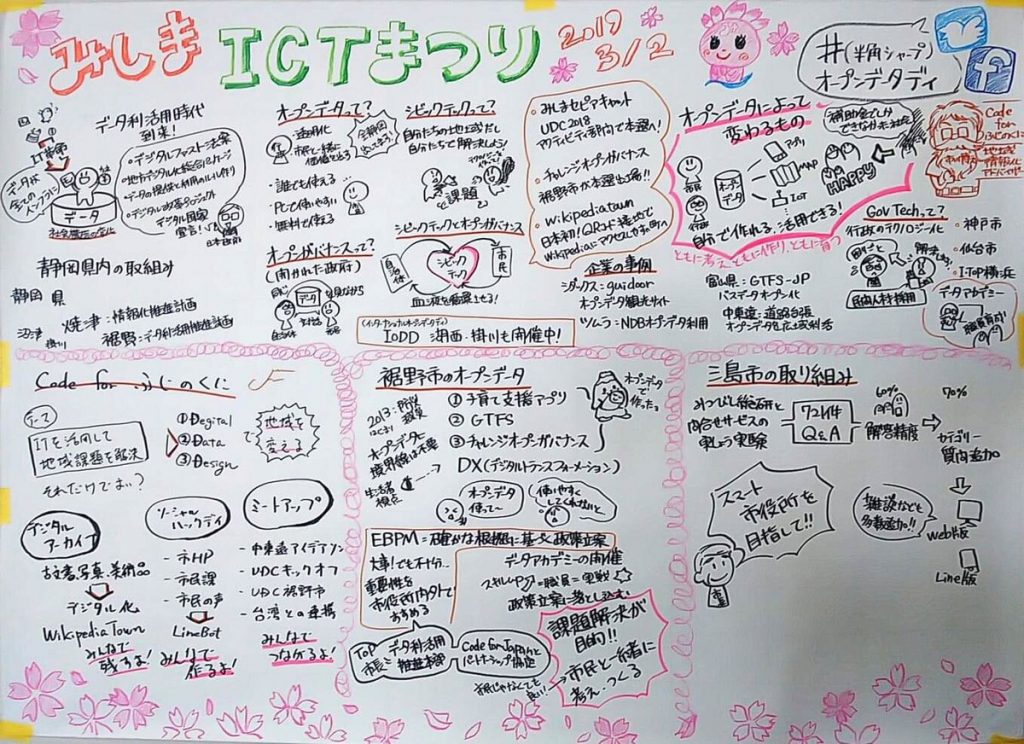 みしまICTまつり
2019
3/2
#(半角シャープ)
オープンデータデイ
データ利活用時代
到来!
データが
データ
・デジタルファスト法案
・デジタル改革プロジェクト
デジタル国家
宣言!
日本政府
静岡県内の取組み
静岡県
沼津
掛川
焼津:情報化推進計画
裾野:データ利活用推進計画
オープンデータって?
・透明化
・誰でも使える
・PCで使いやすい
・無料で使える
オープンガバナンスって?
(開かれた政府)
データ
対話
シビックテックって?
自分たちの地域課題
自分たちで解決しよう!
課題
シビックテックとオープンガバナンス
自治体
シビック
テック
市民
(インターナショナルオープンデータデイ)
IODD 湖西・掛川も開催中!
・みしまセピアキャット
UDC2018
アクティビティ部門で本選へ!
・チャレンジオープンガバナンス
裾野市が本選出場!!
・Wikipediatown
日本初!QRコード接地で
企業の事例
シダックス:guidoor
オープンデータ観光サイト
ツムラ:NDBオープンデータ利用
オープンデータによって
変わるもの
補助金でしか
できなかった社会
オープン
データ
アプリ
MAP
IoT
HAPPY
自分で作れる、活用できる!
ともに考え、ともに作り、ともに育つ
富山県:GTFS-JP
バスデータオープン化
中東遠:道路台帳
オープンデータ化広域利活
Code
for
ふじのくに
地域
情報化
アドバイザー
GovTechって?
行政のテクノロジー化
・神戸市
・仙台市
・I・TOP横浜
民間人材採用
データアカデミー
職員育成!
Code for ふじのくに
テーマ
ITを活用して
地域課題を解決
それだけでよい?
①Degital
②Data
③Design
で
地域を
変える
デジタル
アーカイブ
古書、写真、美術品
デジタル化
WikipediaTown
みんなで
残すよ!
ソーシャル
ハックデイ
-市HP
-市民課
-市民の声
LineBot
みんなで
作るよ!
ミートアップ
-中東遠アイデアソン
-UDCキックオフ
-UDC裾野市
-台湾との連携
みんなで
つながるよ!
裾野市のオープンデータ
2013:防災
はじまり
オープンデータに
境界線は不要
生活者
視点
①子育て支援アプリ
②GTFS
③チャレンジオープンガバナンス
DX(デジタルトランスフォメーション)
オープンデータ
で!
作ったよ
オープンデータ
使って〜
使いやすく
してくれないと
EBPM=確かな根拠に基づく政策立案
大事!でも不十分…
重要性を
市役所内外で
おすすめる
データアカデミーの開催
政策立案に落とし込む
TOP
市長:
データ利活用
推進本部
Code for Japanと
パートナーシップ協定
課題解決が
目的!!
市民と一緒に
考え、つくる
三島市の取り組み
みつびし総研と
問合せサービスの
実しょう実験
724件
Q&A
60%
解答精度
70%
カテゴリー
質問追加
雑談なども
多数追加!!
Web版
Line版
スマート
市役所を
目指して!!